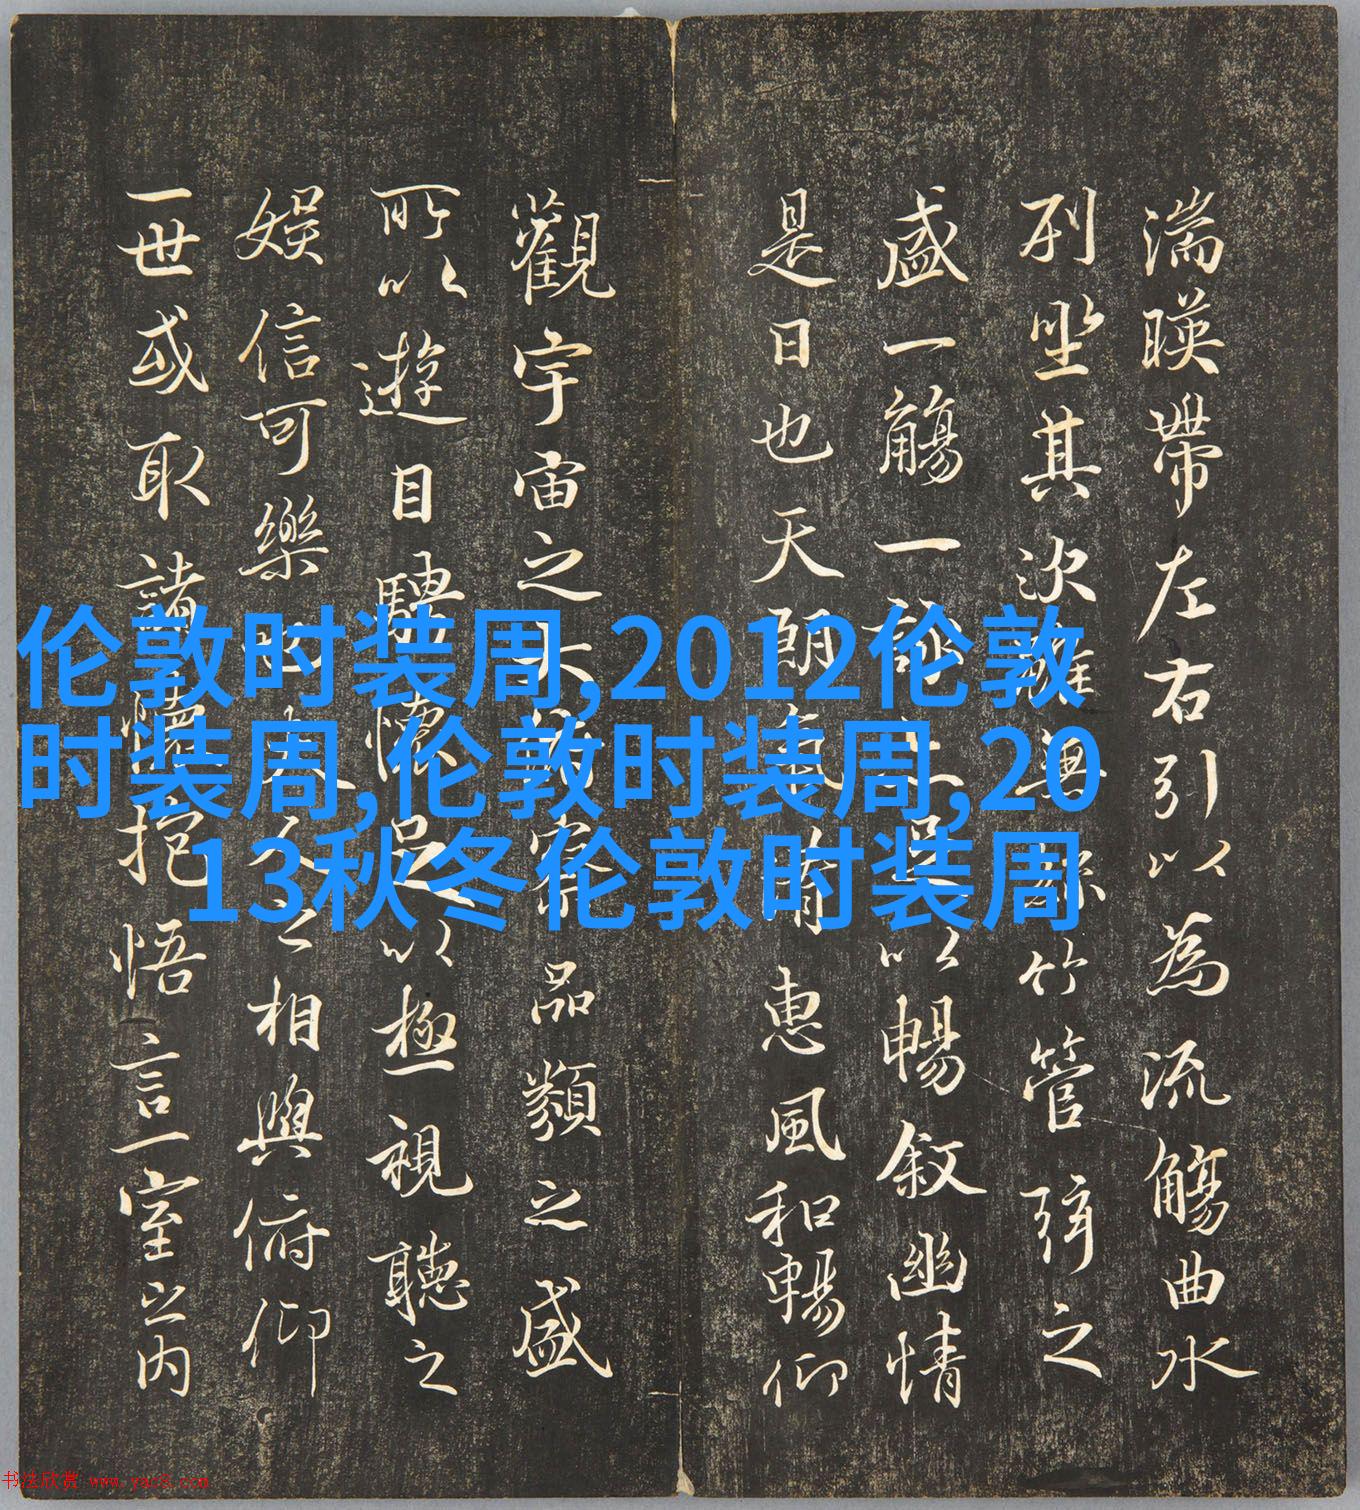 湍暎帶左右引以為流觴曲水
列坐其次雖無絲竹管弦之
盛一觴一詠亦足以暢敘幽情
是日也天朗氣清惠風和暢仰
觀宇宙之大俯察品類之盛
所以遊目騁懷足以極視聽之
娛信可樂也夫人之相與俯仰
一世或取諸懷抱悟言一室之内
伦敦时装周,2012伦敦
时装周,伦敦时装周,20
13秋冬伦敦时装周
书法欣赏 www.yac8.com